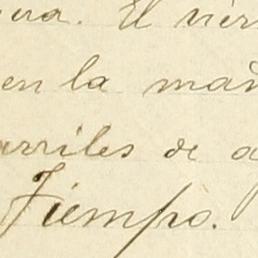 era. El vier
en la mañ
arriles de a
Tiempo.